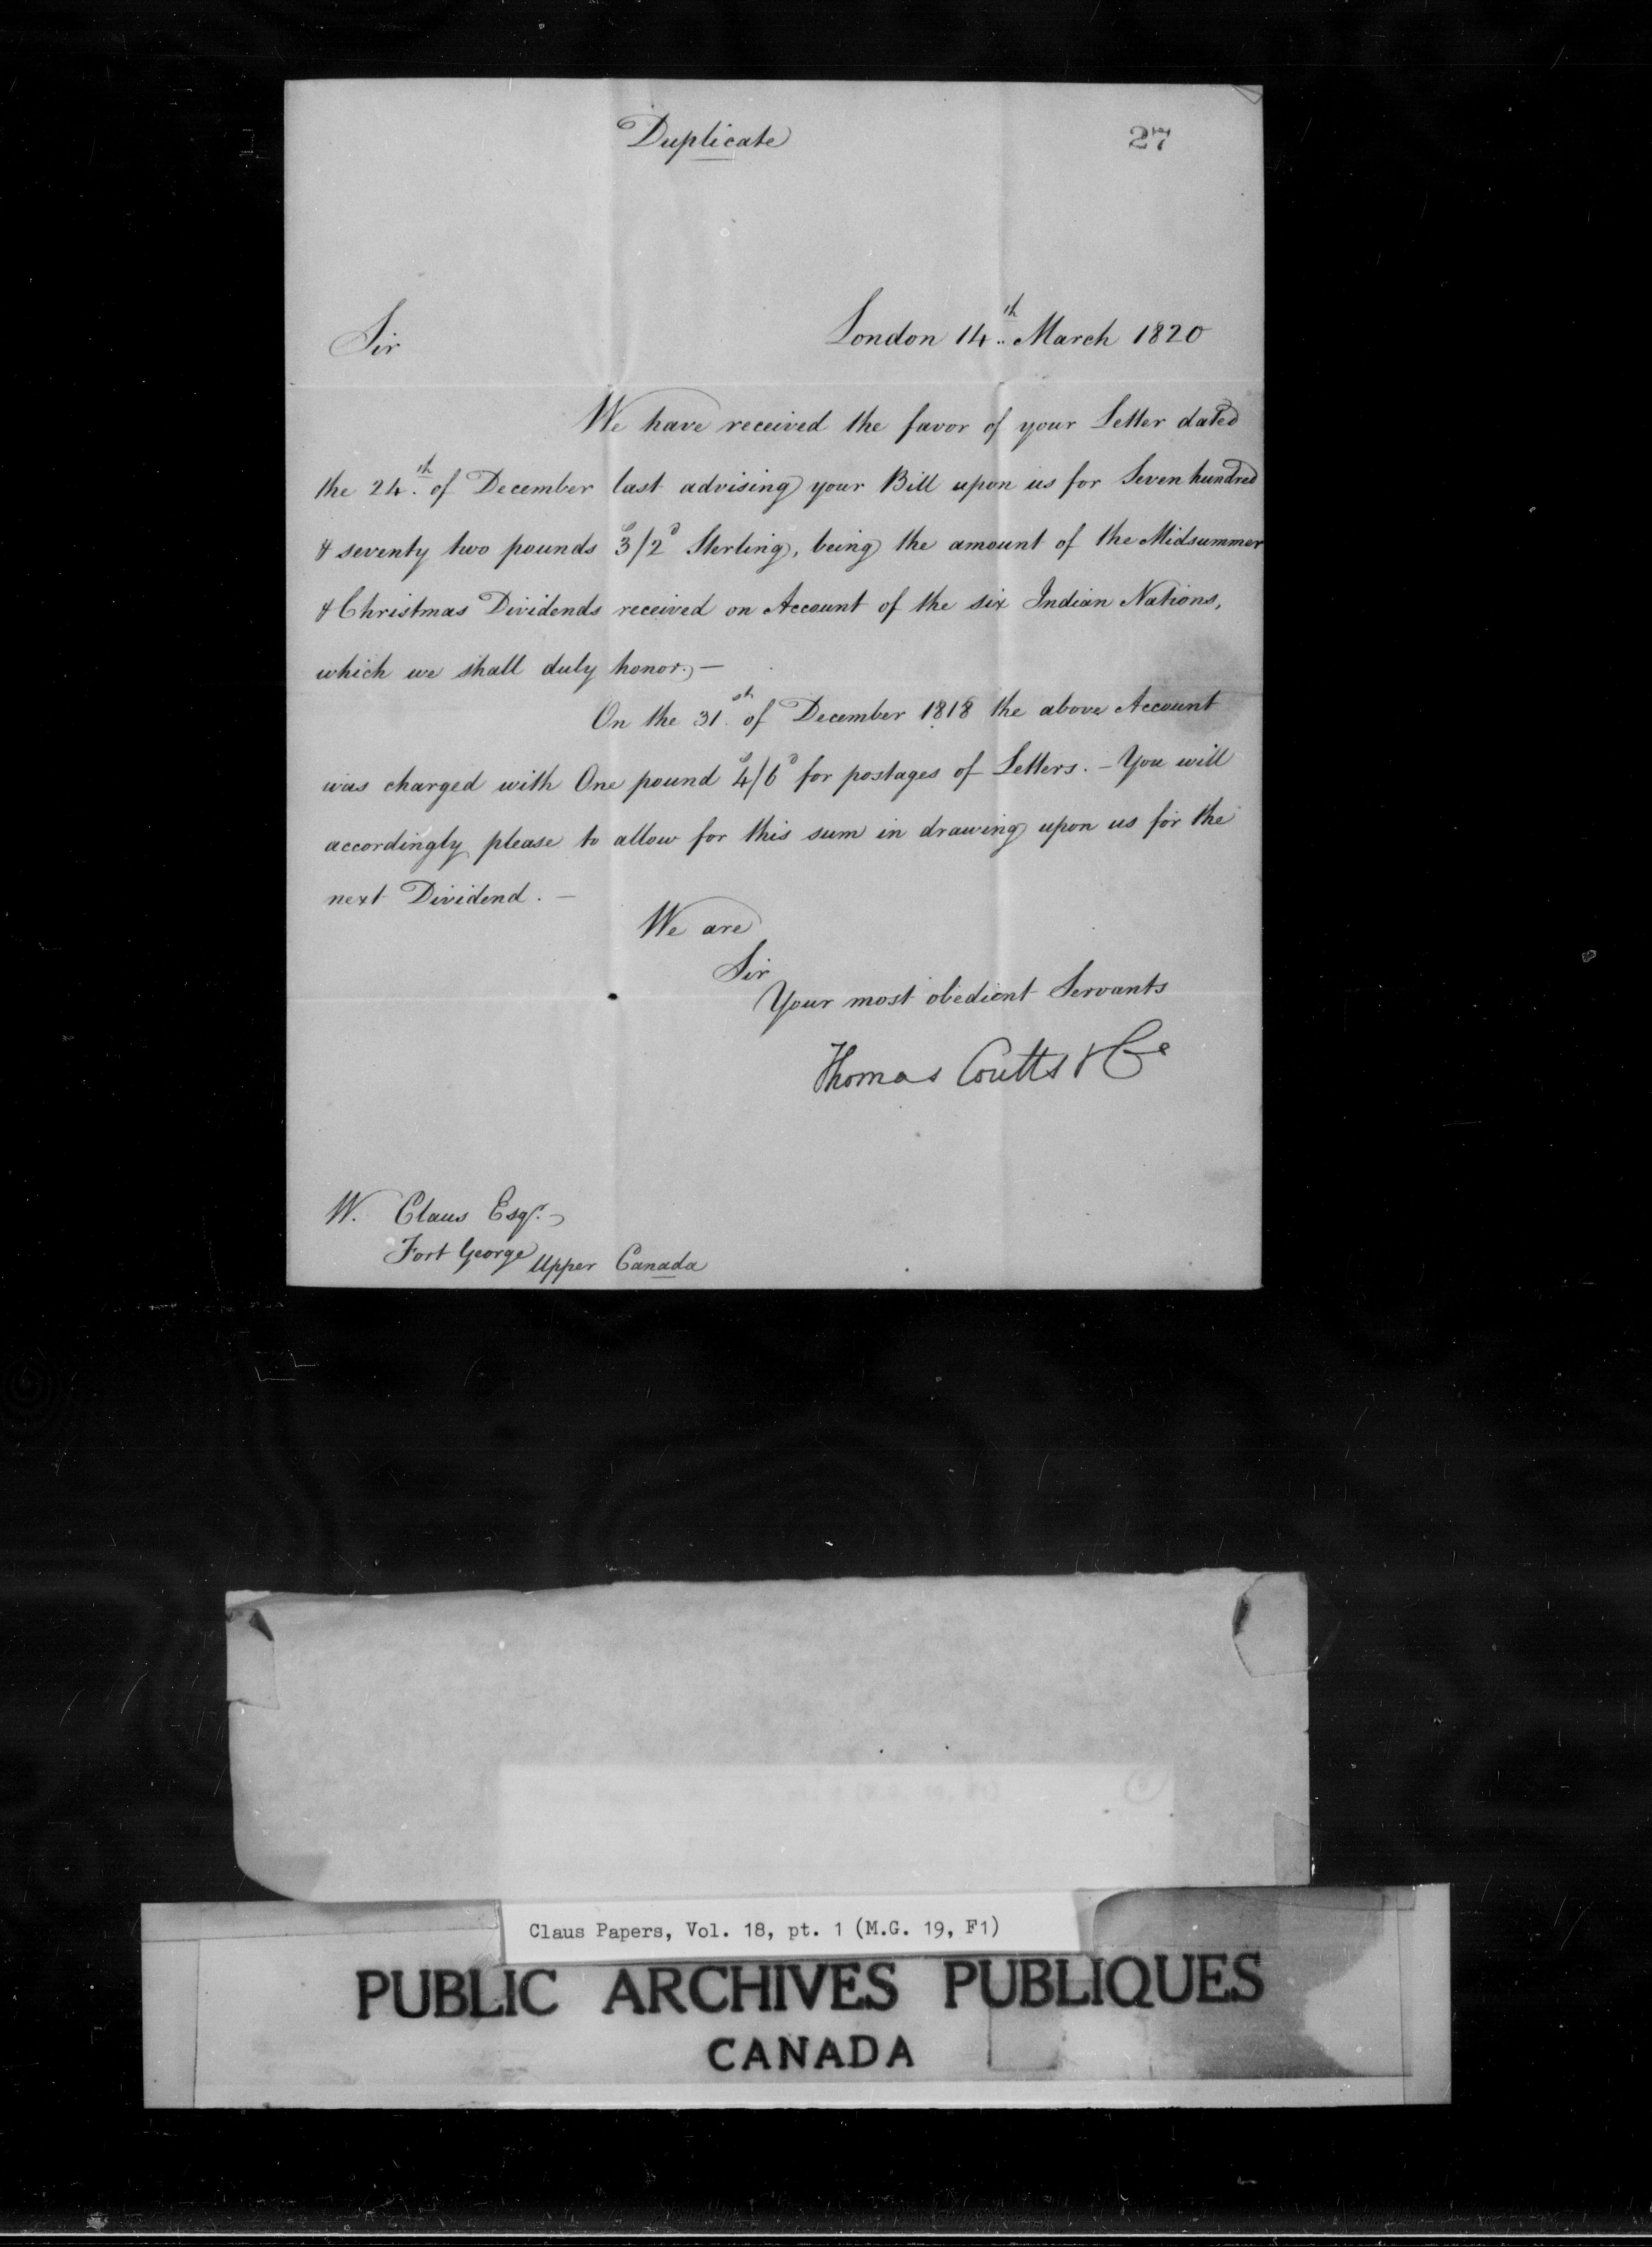 Duplicate
27
London 14th March 1820
Sir
We have received the favor of your Letter dated
the 24th of December last advising your Bill upon us for Seven hundred
& seventy two pounds 3s/2d Sterling, being the amount of the Midsummer
& Christmas Dividends received on Account of the six Indian Nations,
which we shall duly honor. —
On the 31st of December 1818 the above Account
was charged with One pound 4s/6d for postages of Letters. — You will
accordingly please to allow for this sum in drawing upon us for the
next Dividend. —
We are
Sir
Your most obedient Servants
Thomas Coutts & Co
W. Claus Esqr.
Fort George Upper Canada
Claus Papers, Vol. 18, pt. 1 (M.G. 19, F1)
PUBLIC ARCHIVES PUBLIQUES
CANADA